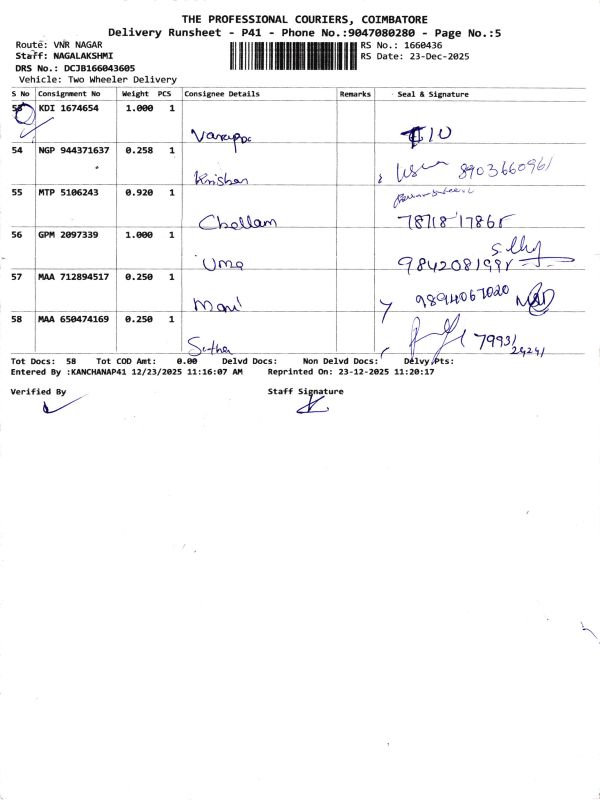 THE PROFESSIONAL COURIERS, COIMBATORE
Delivery Runsheet - P41 - Phone No.:9047080280 - Page No.:5
Route: VNR NAGAR
RS No.: 1660436
Staff: NAGALAKSHMI
RS Date: 23-Dec-2025
DRS No.: DCJB166043605
Vehicle: Two Wheeler Delivery
S No Consignment No Weight PCS Consignee Details Remarks Seal & Signature
53 KDI 1674654 1.000 1
54 NGP 944371637 0.258 1
Krishan 8903660961
55 MTP 5106243 0.920 1
Chellam
56 GPM 2097339 1.000 1
Uma
57 MAA 712894517 0.250 1
Mani 9894067020
58 MAA 650474169 0.250 1
Tot Docs: 58 Tot COD Amt: 0.00 Delvd Docs: Non Delvd Docs: Delvy.Pts:
Entered By :KANCHANAP41 12/23/2025 11:16:07 AM Reprinted On: 23-12-2025 11:20:17
Verified By Staff Signature